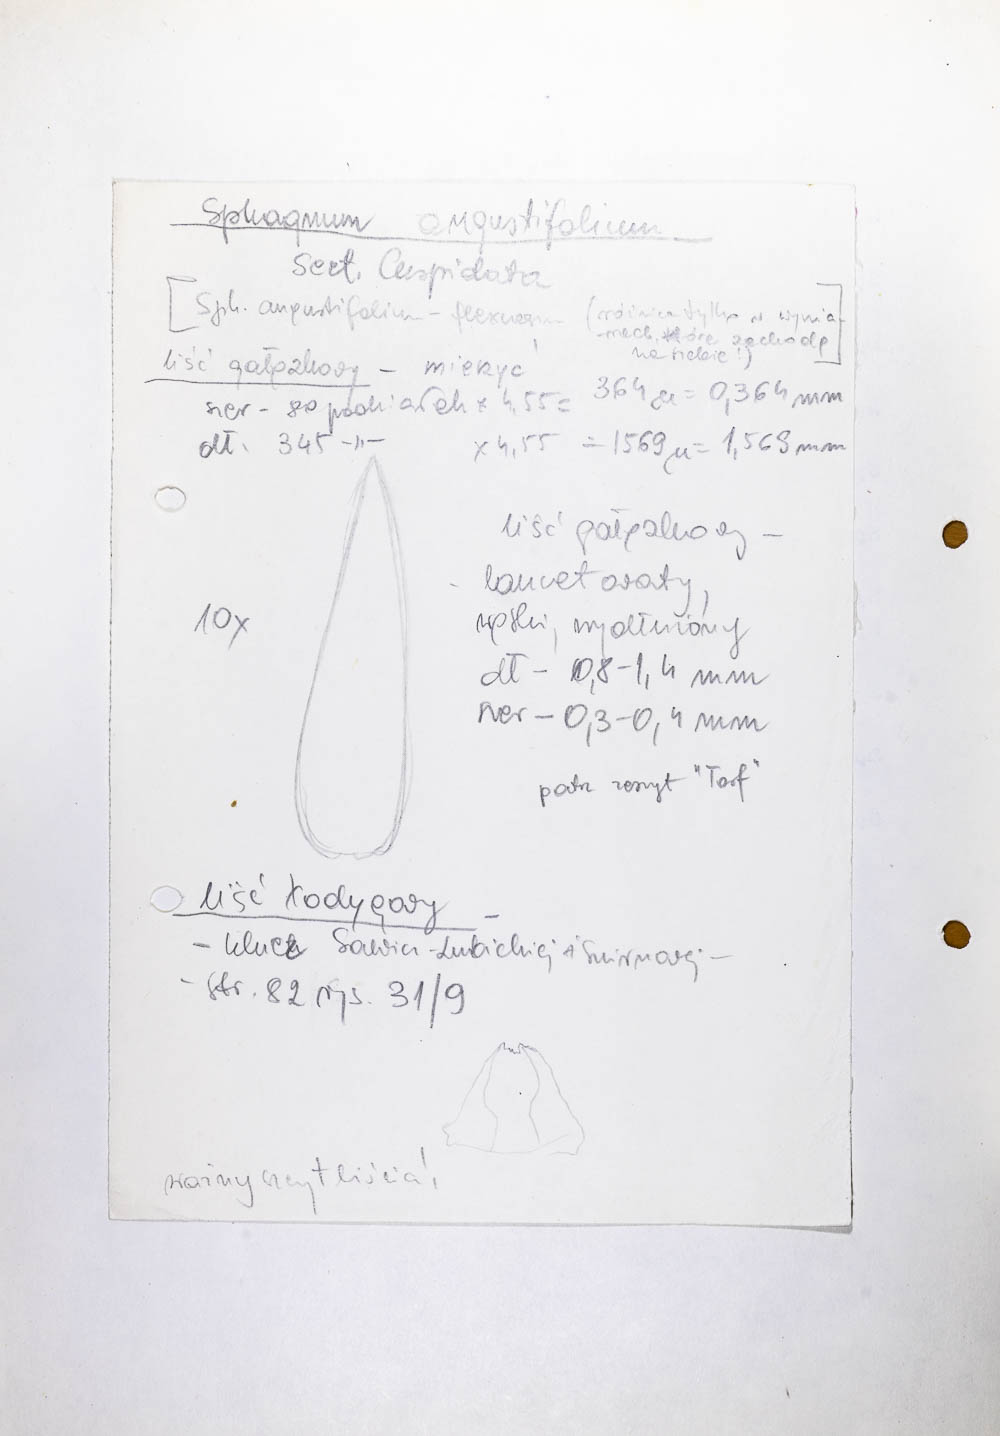 Sphagnum angustifolium
Sect. Cuspidata
[Sph. angustifolium - flexuosum (różnica tylko w wymia-
-rach, które zachodzą
na siebie!)]
liść gałązkowy - mierzyć!
szer - 80 podziałek x 4,55 = 364 µ = 0,364 mm
dł. 345 -"- x 4,55 = 1569 µ = 1,569 mm
liść gałązkowy -
lancetowaty,
wąski, wydłużony
10x
dł - 0,8-1,4 mm
szer - 0,3-0,4 mm
patrz zeszyt "Torf"
liść łodygowy -
- klucz Sawicz-Lubickiej i Smirnowej -
- Str. 82 rys. 31/9
ważny szczyt liścia!